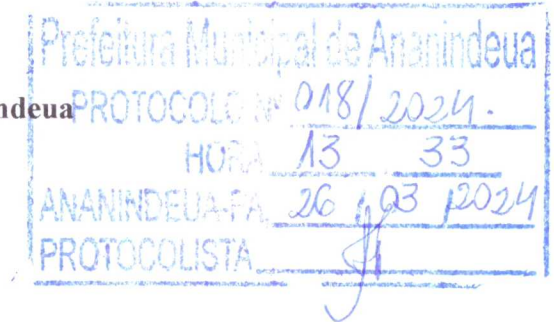 Prefeitura Municipal de Ananindeua
ndeua
PROTOCOLO Nº 018/2024.
HORA 13 33
ANANINDEUA-PA. 26/03/2024
PROTOCOLISTA